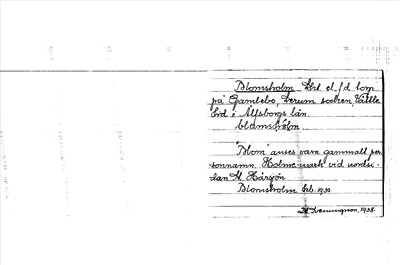 Blomsholm Lht el. t/d torp
på Gamlebo, Lerum socken, Vättle
hrd i Älfsborgs län.
blomshòlm
Blom anses vara gammalt per-
sonnamn. Holme-mark vid nordsi-
dan af Härsjön
Blomsholm Seb. 1930.
1938.